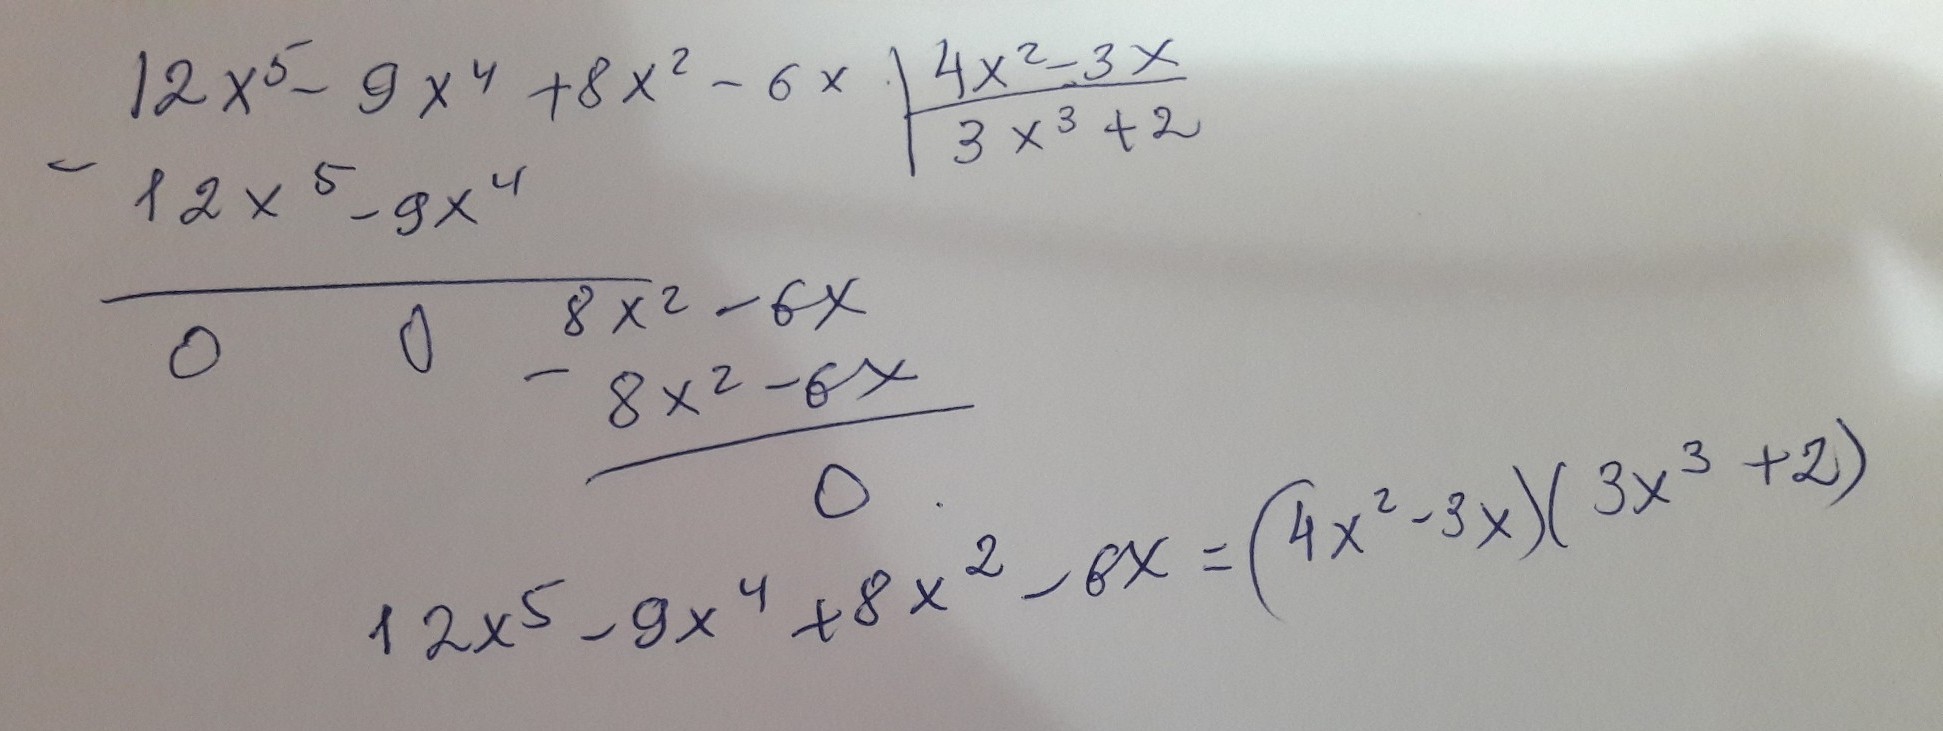 12x⁵ - 9x⁴ + 8x² - 6x | 4x² - 3x
3x³ + 2
- 12x⁵ - 9x⁴
0 0 8x² - 6x
- 8x² - 6x
0
12x⁵ - 9x⁴ + 8x² - 6x = (4x² - 3x)(3x³ + 2)